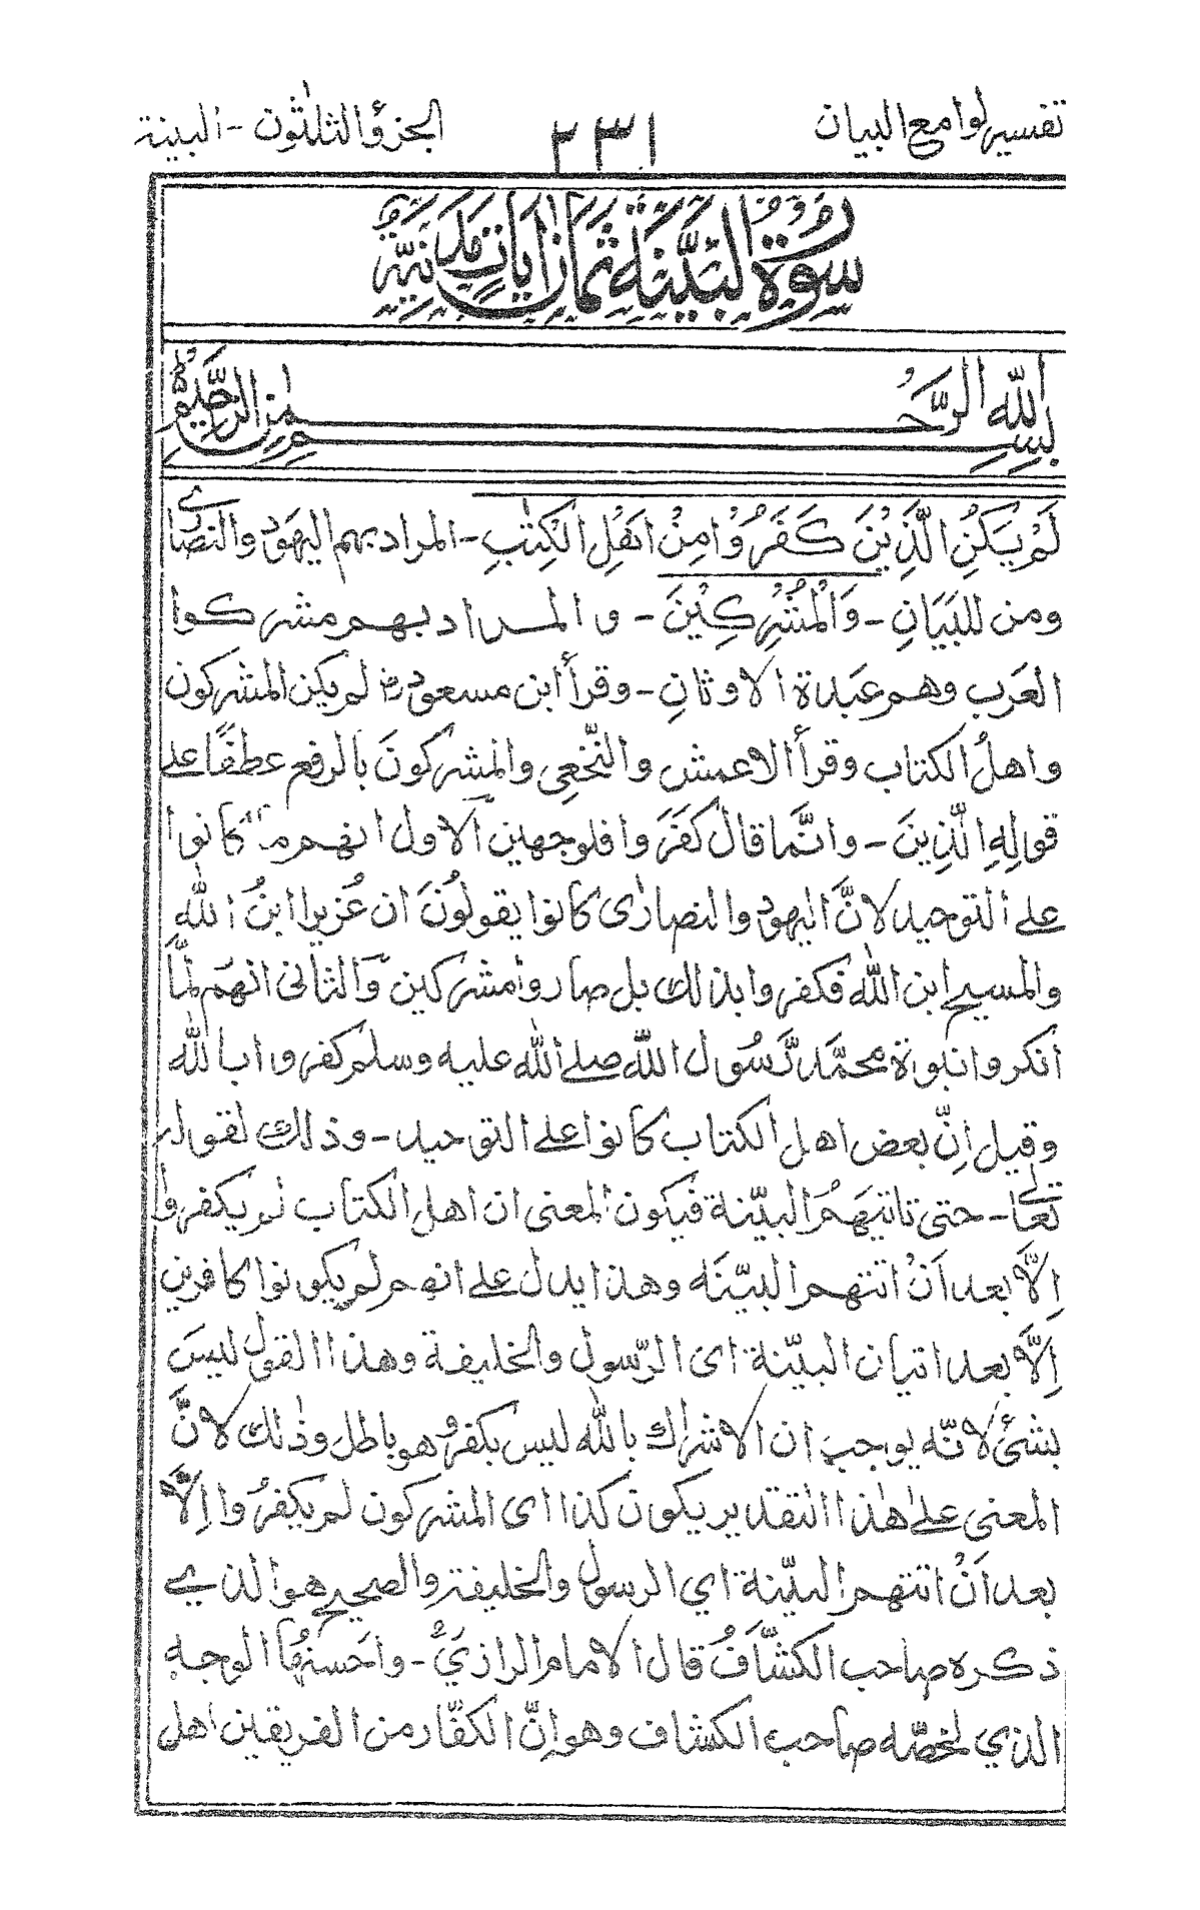 تفسير لوامع البيان ٢٣١ الجزؤ الثلثون - البينة
سورة البينة ثمان ايات مدنية
بسم الله الرحمن الرحيم
لَمْ يَكُنِ الَّذِيْنَ كَفَرُوْا مِنْ اَهْلِ الْكِتٰبِ - المراد بهم اليهود والنصارٰى
ومن للبَيَانِ - وَالْمُشْرِكِيْنَ - والمراد بهم مشركوا
العَرَب وهم عَبَدة الاوثانِ - وقرأ ابن مسعودؓ لم يكن المشركون
واهلُ الكتاب وقرأ الاعمش والنّخَعِي والمشركونَ بالرفع عطفًا على
قولِهِ الّذِينَ - وانَّما قال كفَرَوا فلوجهين الاول انهم ما كانوا
على التوحيد لانَّ اليهود والنصارٰى كانوا يقولُونَ ان عُزيرا ابنُ الله
والمسيح ابن الله فكفروا بذلك بل صاروا مشركين وَالثانى انهَم لمَّا
انكروا نبوة محمَّد رَّسُول الله صلى الله عليه وسلم كفروا بالله
وقيل اِنّ بعض اهل الكتاب كانوا على التوحيد - وذلك لقوله
تعالى - حتى تاتيَهُمُ البيّنة فيكون المعنى ان اهل الكتاب لم يكفروا
اِلَّا بعد اَنْ اتتهم البيّنَة وهذا يدل على انهم لم يكونوا كافرين
اِلَّا بعد اتيان البيّنة اى الرّسول والخليفة وهذا القول ليسَ
بشئ لانّه يوجب ان الاشراك بالله ليس بكفر و هو باطل وذلك لانَّ
المعنى على هٰذا التقدير يكون كذا اى المشركون لم يكفرُوا اِلَّا
بعد اَنْ اتتهم البيّنة اي الرسول والخليفة والصحيح هو الذي
ذكره صاحب الكشَّافُ قال الامام الرازيؒ - واحَسنهُا الوجه
الذي لخصّه صاحب الكشاف وهو اِنّ الكفّار من الفريقين اهل